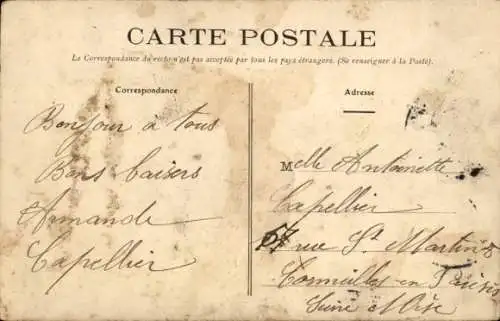 CARTE POSTALE
La Correspondance du recto n'est pas acceptée par tous les pays étrangers. (Se renseigner à la Poste).
Correspondance
Bonjour a tous
Bons baisers
Armande
Capellier
Adresse
Melle Antoinette
Capellier
57 rue St Martin
Cormeilles en Parisis
Seine et Oise